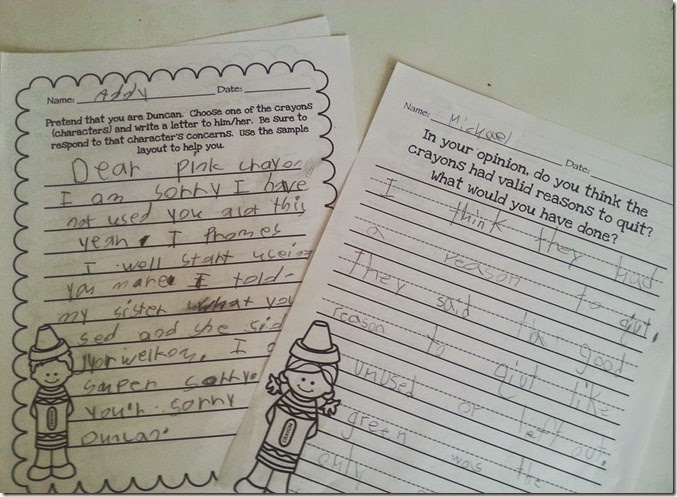 Name: Addy Date:
Pretend that you are Duncan. Choose one of the crayons
(characters) and write a letter to him/her. Be sure to
respond to that character's concerns. Use the sample
layout to help you.
Dear Pink crayon
I am sorry I have
not used you alot this
yeah. I Promes
I well start useing
you more I told
my sister what you
sed and she sid
your welkom. I a
super sorry.
your sorry
Duncan.
Name: Mickael Date:
In your opinion, do you think the
crayons had valid reasons to quit?
What would you have done?
I think they had
a reason to quit.
They said good
reason to qiut like
unused or left out.
green was the
only
CRAYON
CRAYON